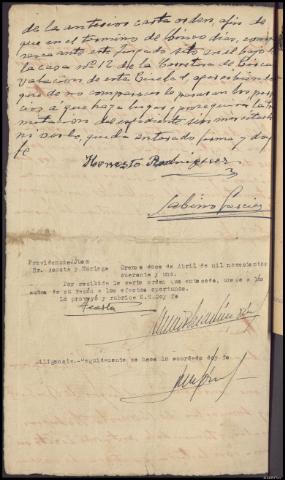 de la anterior carta orden, afin de
que en el termino de cinco dias, comp
rezca ante este Juzgado sito en el bajo de
la casa nº 12 de la Carretera de Circun
valacion de esta Ciudad, apercibiendo
que de no comparecer le pararan los perjui
cios a que haya lugar y proseguira la tra
mitacion del expediente sin mas citarle
ni oirle, queda enterado firma y doy
fe
Honesto Rodriguez
Sabino Garcia
Providencia/Juez
Sr. Acosta y Noriega
Orense doce de Abril de mil novecientos
cuarenta y uno.
Por recibida la carta orden que antecede, unase a los
autos de su razón a los efectos oportunos.
Lo proveyó y rubrica S.S. Doy fe
Acosta
Diligencia.- Seguidamente se hace lo acordado doy fe